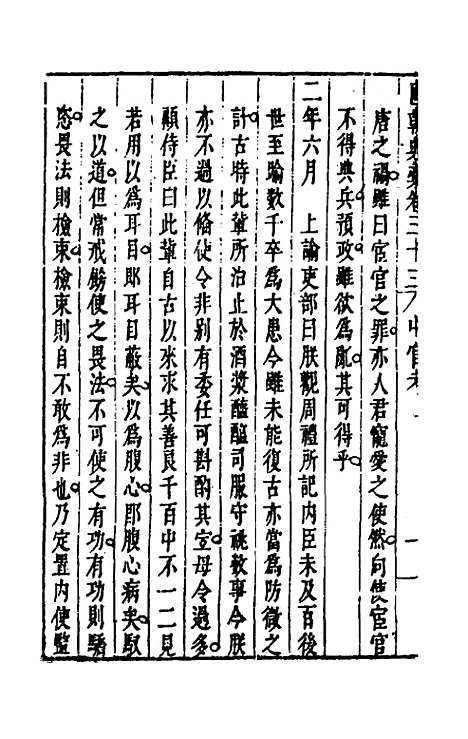 國朝典彙卷三十三 中官考 一
唐之禍雖曰宦官之罪亦人君寵愛之使然向使宦官
不得典兵預政雖欲為亂其可得乎
二年六月 上諭吏部曰朕觀周禮所記內臣未及百後
世至踰數千卒為大患今雖未能復古亦當為防微之
計古時此輩所治止於酒漿醯醢司服守祧數事今朕
亦不過以備使令非別有委任可斟酌其宜毋令過多
顧侍臣曰此輩自古以來求其善良千百中不一二見
若用以為耳目即耳目蔽矣以為腹心即腹心病矣馭
之以道但常戒飭使之畏法不可使之有功有功則驕
恣畏法則檢束檢束則自不敢為非也乃定置內使監